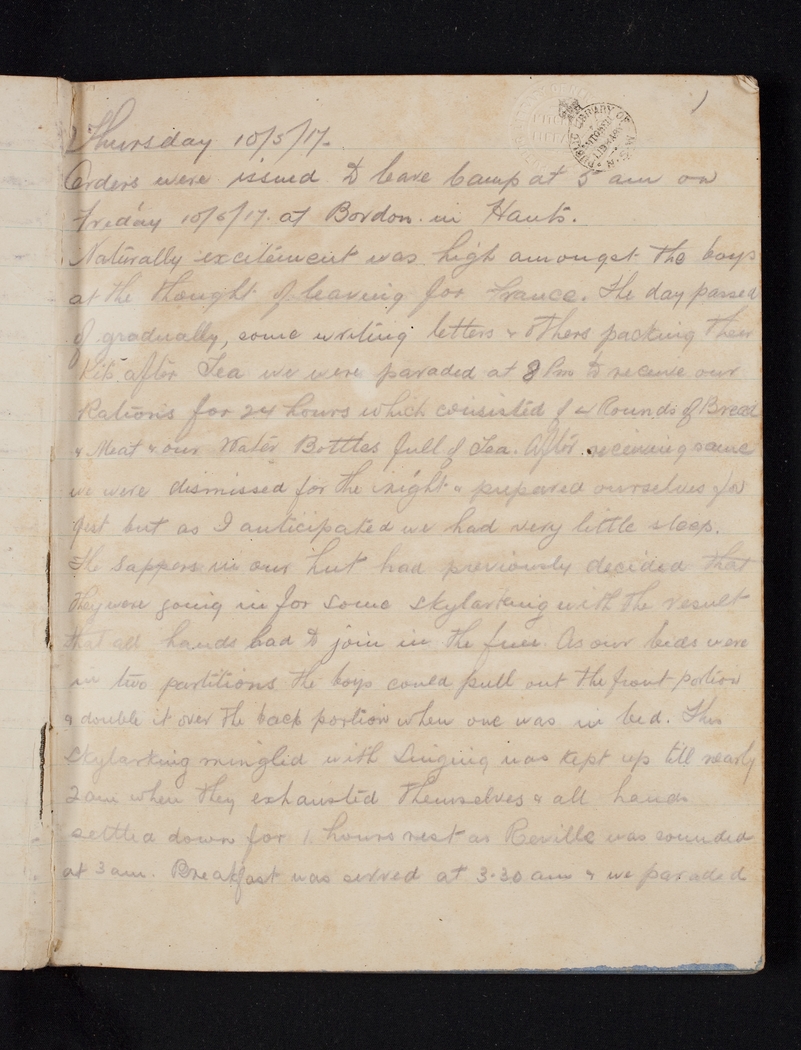 1
PUBLIC LIBRARY OF N.S.W.
MITCHELL LIBRARY
Thursday 10/5/17.
Orders were issued to leave Camp at 5 am on
Friday 10/5/17. at Bordon. in Hants.
Naturally excitement was high amongst the boys
at the thought of leaving for France. The day passed
of gradually, some writing letters & others packing their
kits after Tea we were paraded at 8 Pm to receive our
Rations for 24 hours which consisted of 4 Rounds of Bread
& Meat & our Water Bottles full of Tea. After receiving same
we were dismissed for the night & prepared ourselves for
rest but as I anticipated we had very little sleep.
The Sappers in our hut had previously decided that
they were going in for some skylarking with the result
that all hands had to join in the fun. As our beds were
in two partitions the boys could pull out the front portion
& double it over the back portion when one was in bed. This
skylarking mingled with Singing was kept up till nearly
2 am when they exhausted themselves & all hands
settled down for 1 hours rest as Reville was sounded
at 3 am. Breakfast was served at 3.30 am & we paraded